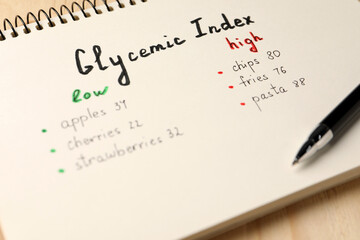 Glycemic Index
low
apples 39
cherries 22
strawberries 32
high
chips 80
fries 76
pasta 88